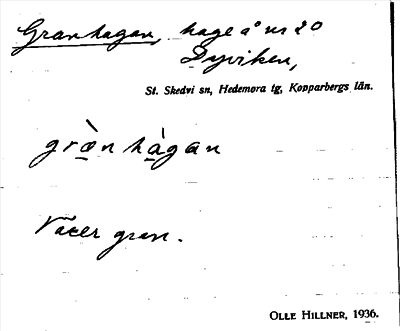 Granhagan, hage å nr 20
Dyviken,
St. Skedvi sn, Hedemora tg, Kopparbergs län.
grà̱n hà̱gan
Växer gran.
OLLE HILLNER, 1936.